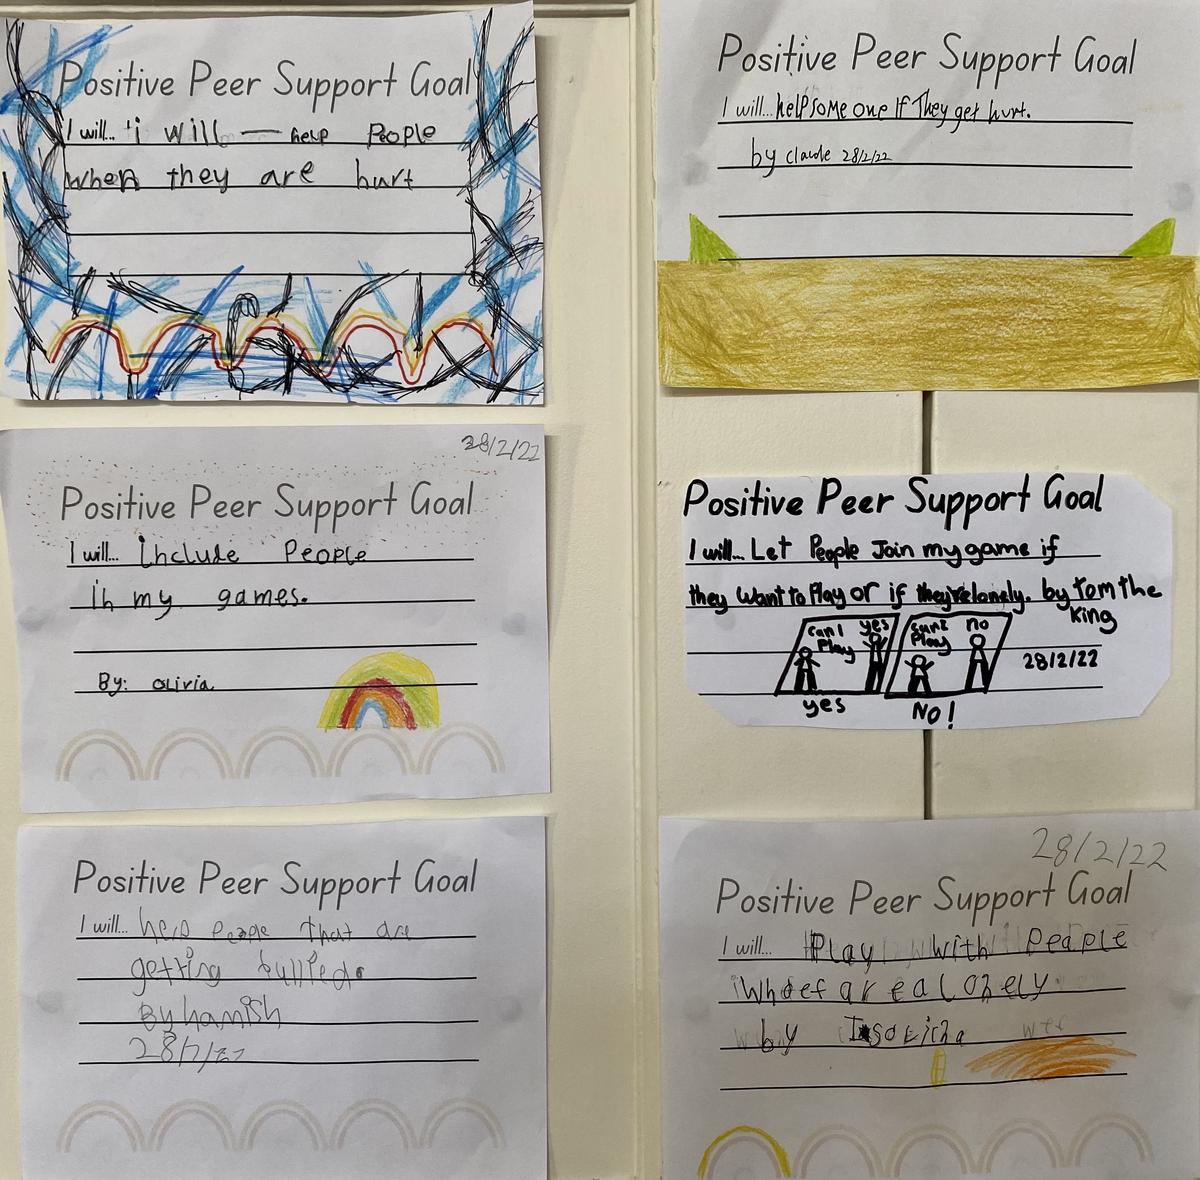 Positive Peer Support Goal
I will... i will — help People
when they are hurt
Positive Peer Support Goal
I will... help some one If They get hurt.
by claude 28/2/22
28/2/22
Positive Peer Support Goal
I will... include People
in my games.
By: olivia
Positive Peer Support Goal
I will... Let People Join my game if
they Want to Play or if they're lonely. by Tom the
King
can I Play yes
can I Play no
28/2/22
yes
NO!
Positive Peer Support Goal
I will... help People that are
getting bullied.
By hamish
28/2/22
28/2/22
Positive Peer Support Goal
I will... Play with People
are a Lonely
by